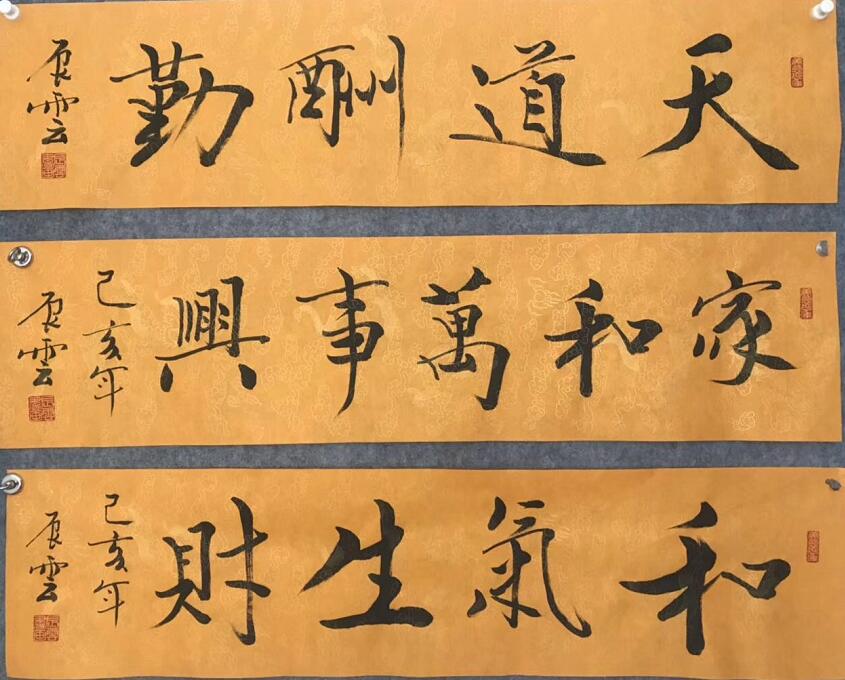 天道酬勤
雲
家和萬事興
己亥年
雲
和氣生財
己亥年
雲